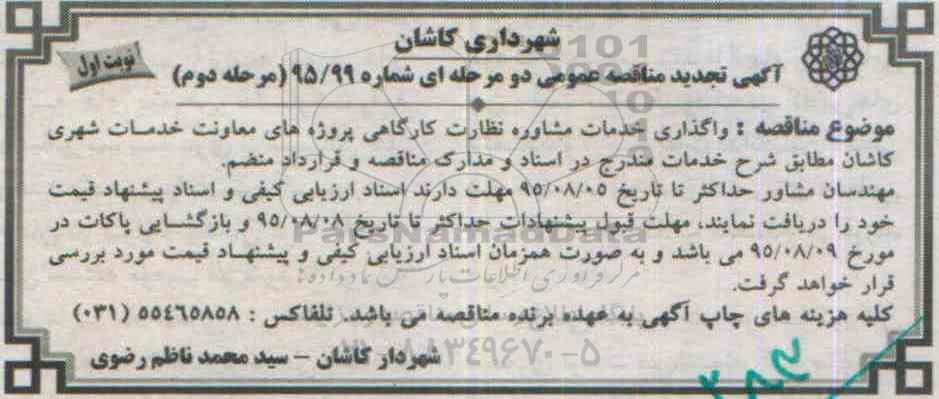 شهرداری کاشان
نوبت اول
آگهی تجدید مناقصه عمومی دو مرحله ای شماره ۹۵/۹۹ (مرحله دوم)
موضوع مناقصه : واگذاری خدمات مشاوره نظارت کارگاهی پروژه های معاونت خدمات شهری
کاشان مطابق شرح خدمات مندرج در اسناد و مدارک مناقصه و قرارداد منضم.
مهندسان مشاور حداکثر تا تاریخ ۹۵/۰۸/۰۵ مهلت دارند اسناد ارزیابی کیفی و اسناد پیشنهاد قیمت
خود را دریافت نمایند، مهلت قبول پیشنهادات حداکثر تا تاریخ ۹۵/۰۸/۰۸ و بازگشایی پاکات در
مورخ ۹۵/۰۸/۰۹ می باشد و به صورت همزمان اسناد ارزیابی کیفی و پیشنهاد قیمت مورد بررسی
قرار خواهد گرفت.
کلیه هزینه های چاپ آگهی به عهده برنده مناقصه می باشد. تلفاکس : ۵۵۴۶۵۸۵۸ (۰۳۱)
شهردار کاشان – سید محمد ناظم رضوی
ParsNamadData
مرکز فرآوری اطلاعات پارس نماد داده ها
۰۲۱-۸۸۳۴۹۶۷۰-۵